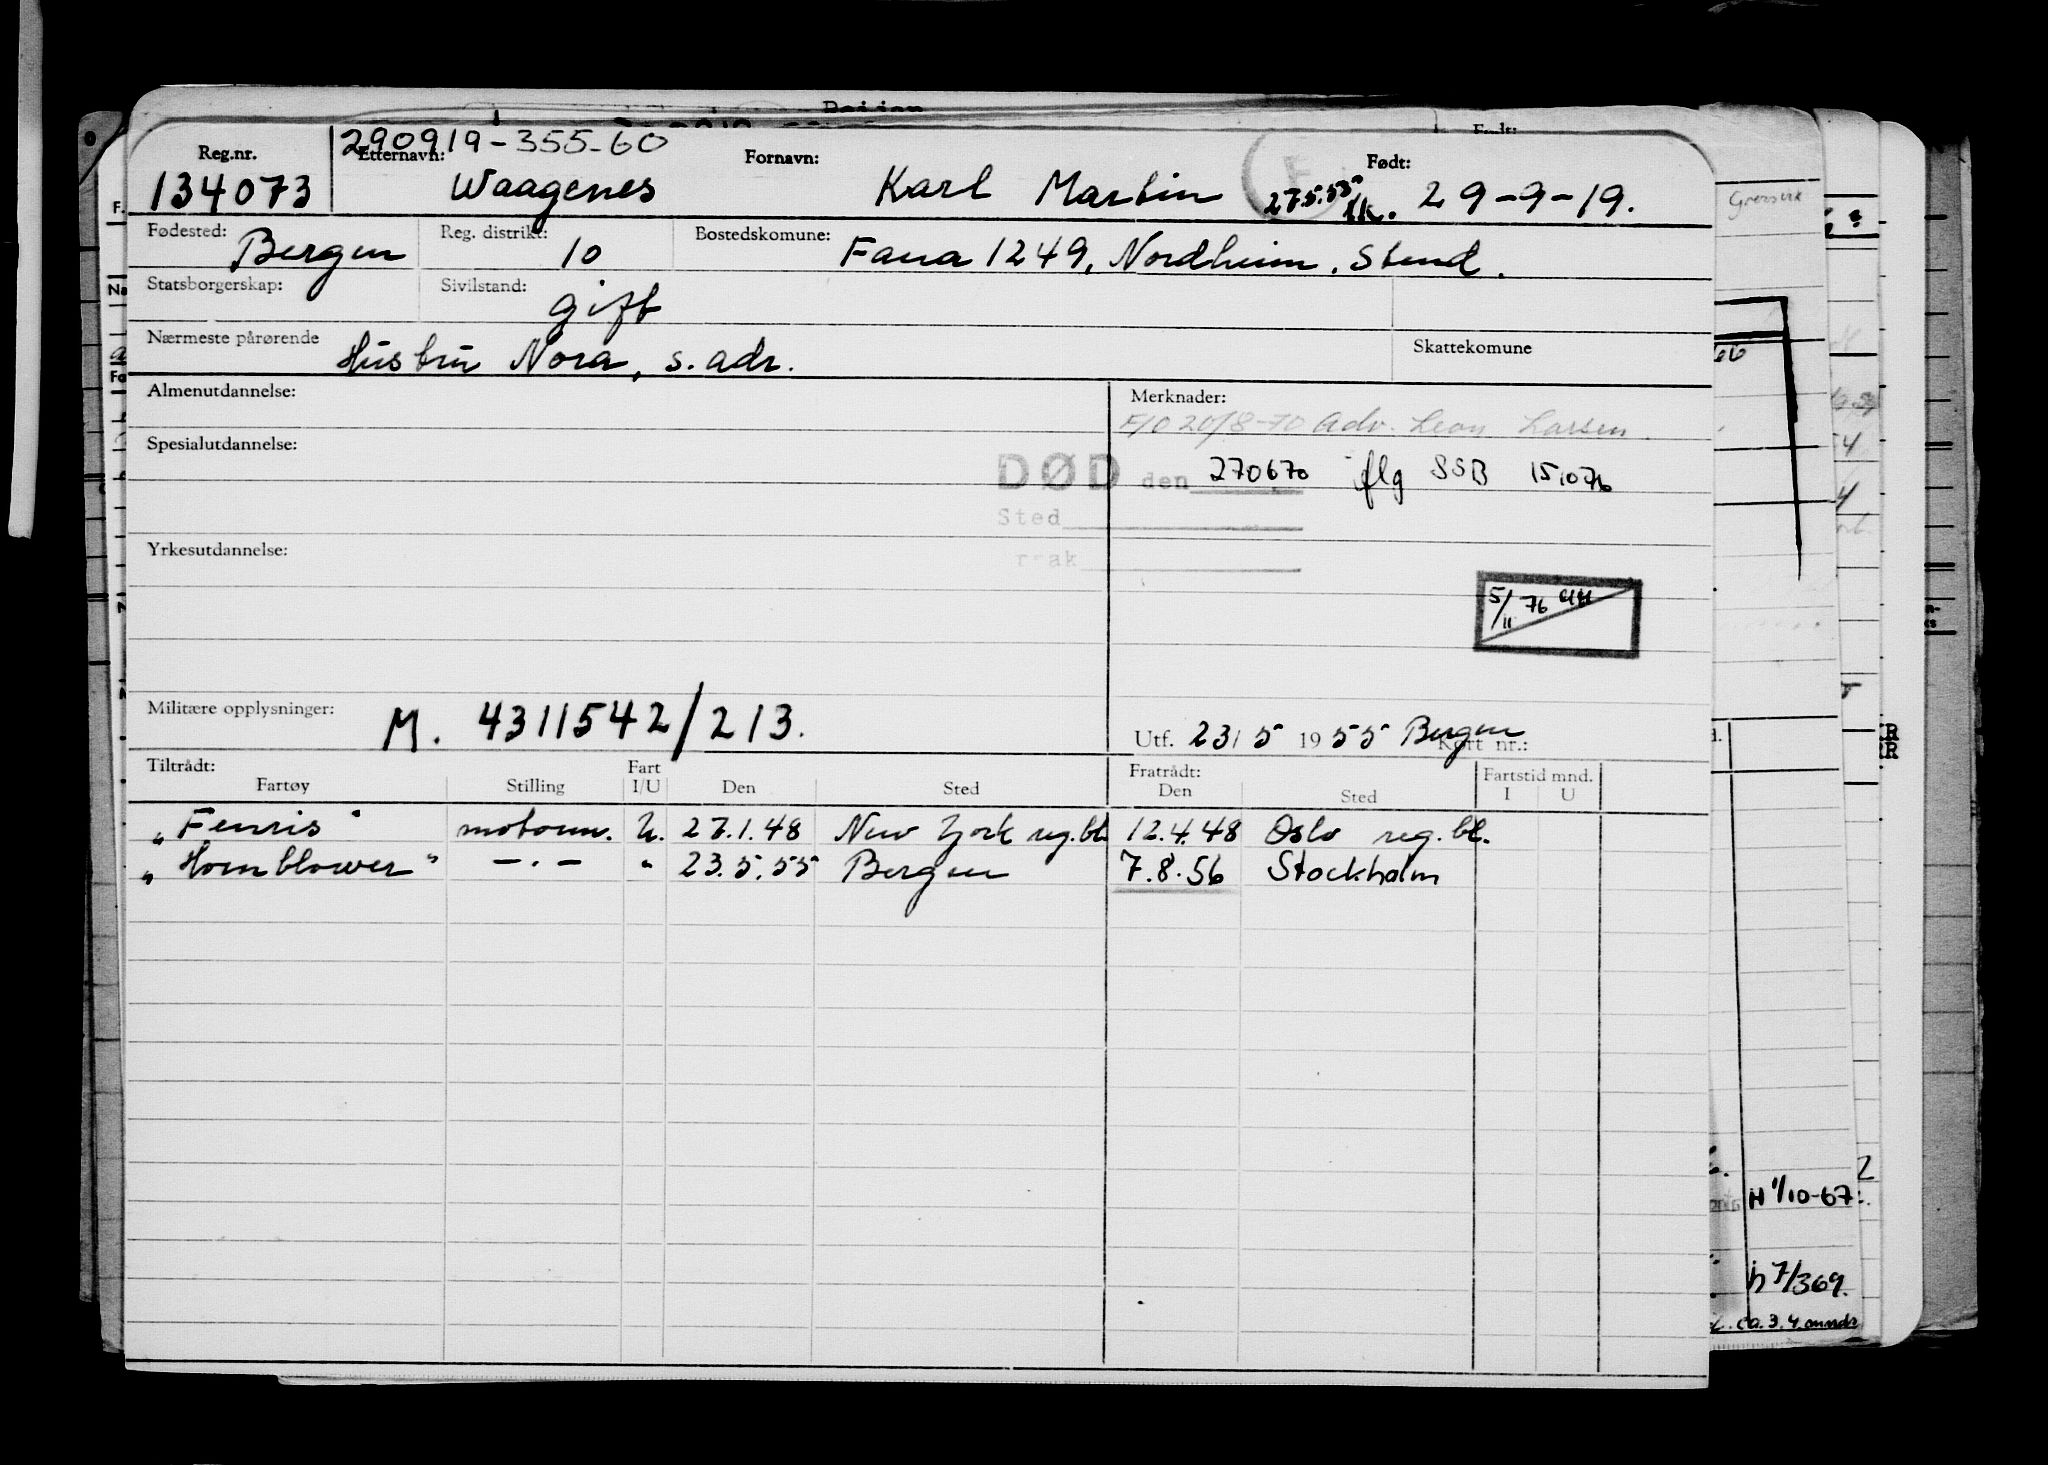 290919-355-60
Reg.nr. Etternavn: Fornavn: Født:
134073 Waagenes Karl Martin 27.5.55 29-9-19.
Fødested: Bergen Reg. distrikt: 10 Bostedskomune: Fana 1249, Nordheim, Stend.
Statsborgerskap: Sivilstand: gift
Nærmeste pårørende Hustru Nora, s. adr. Skattekomune
Almenutdannelse: Merknader:
F/O 20/8-70 Adv. Leon Larsen.
Spesialutdannelse:
DØD den 270670 iflg SSB 151076
Sted
Yrkesutdannelse:
5/11 76
Militære opplysninger: M. 4311542/213.
Utf. 23/5 1955 Bergen Kort nr.:
Tiltrådt: Fart Fratrådt: Fartstid mnd.
Fartøy Stilling I/U Den Sted Den Sted I U
"Fenris" motorm. U. 27.1.48 New York reg.bl. 12.4.48 Oslo reg.bl.
"Hornblower" —.— " 23.5.55 Bergen 7.8.56 Stockholm
H 1/10-67.
h 7/369.
ca. 3.4. mndr